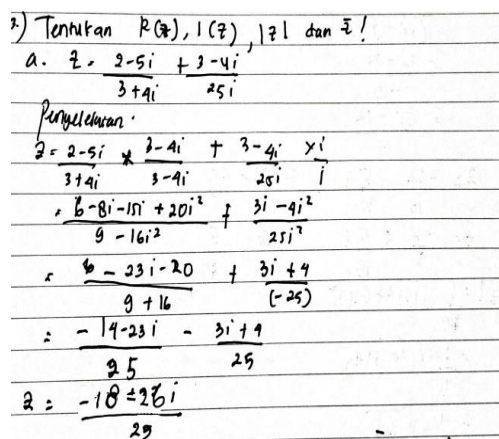 2) Tentukan R(z), I(z), |z| dan z̄ !
a. z = (2-5i)/(3+4i) + (3-4i)/(25i)
Penyelesaian.
z = (2-5i)/(3+4i) * (3-4i)/(3-4i) + (3-4i)/(25i) × i/i
= (6-8i-15i+20i²)/(9-16i²) + (3i-4i²)/(25i²)
= (6-23i-20)/(9+16) + (3i+4)/(-25)
= (-14-23i)/25 - (3i+4)/25
z = (-18-26i)/25